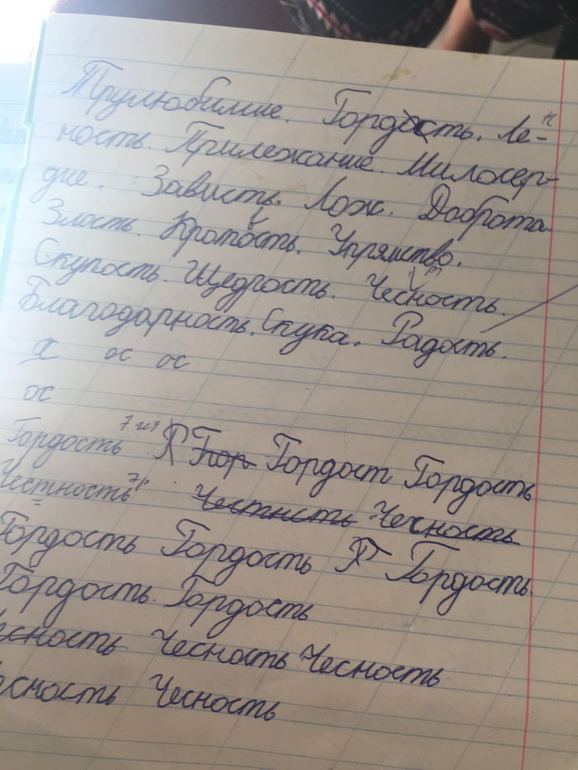 Трулюбимие. Гордость. Ле-
н
ность. Прилежание. Милосер-
дие. Зависть. Лож. Доброта.
Злость. Кротость. Упрямство.
Скупость. Щедрость. Чесность.
т
Благодарность. Скука. Радость.
х ос ос
ос
Гордость Г Гпор Гордост Гордость
Честность Честнсть Чесность
Гордость Гордость Г Гордость.
Гордость. Гордость
Чесность Чесность Чесность
Чесность Чесность